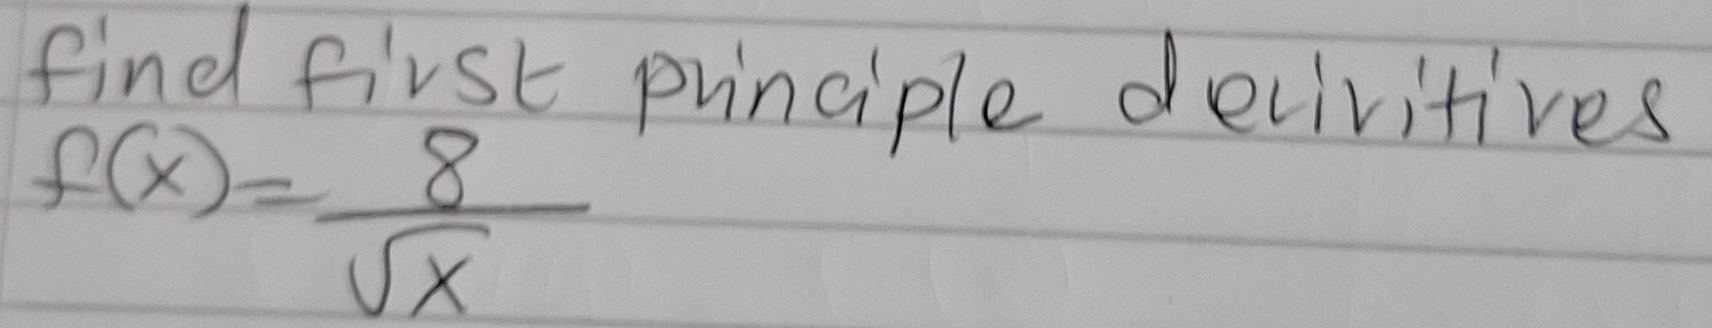 find first principle derivitives
f(x)=8/√x